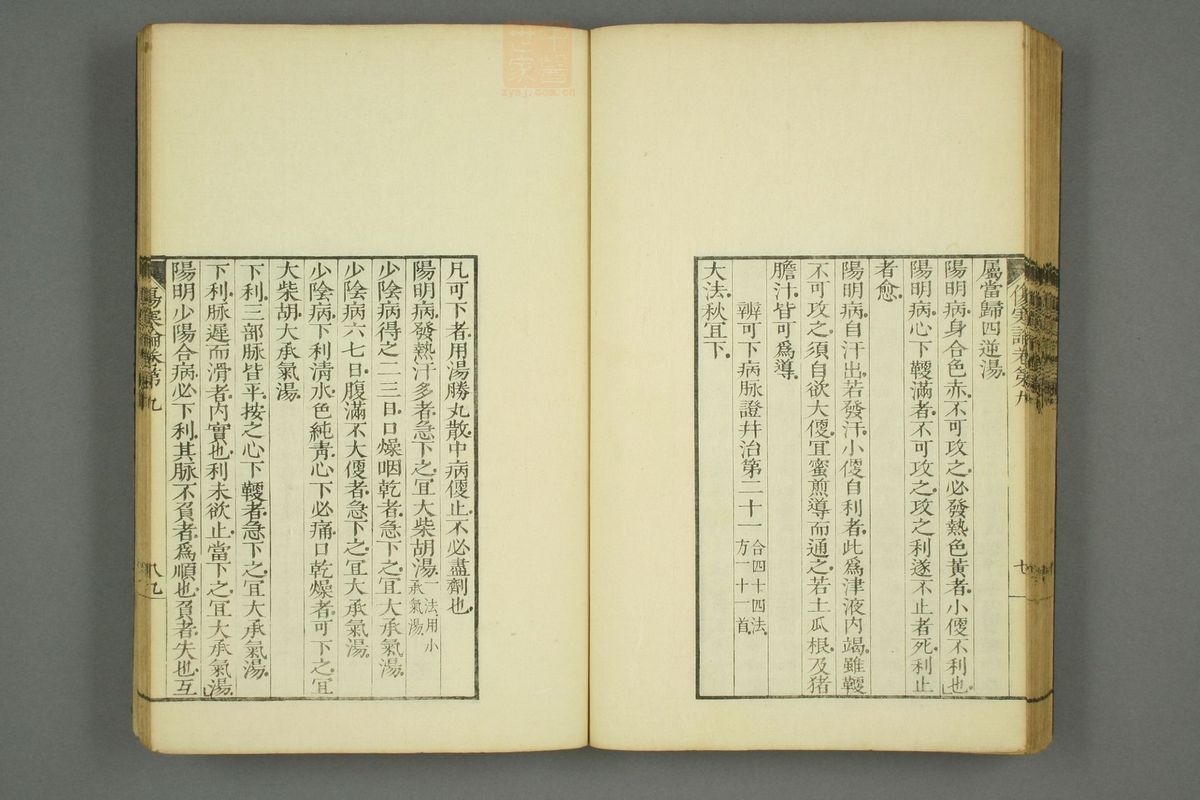 傷寒論卷第九
七
屬當歸四逆湯
陽明病身合色赤不可攻之必發熱色黃者小偠不利也
陽明病心下鞕滿者不可攻之攻之利遂不止者死利止
者愈
陽明病自汗出若發汗小偠自利者此爲津液内竭雖鞕
不可攻之須自欲大偠冝蜜煎導而通之若土瓜根及猪
膽汁皆可爲導
辨可下病脉證幷治第二十一 合四十四法
方一十一首
大法秋冝下
凡可下者用湯勝丸散中病偠止不必盡劑也
陽明病發熱汗多者急下之冝大柴胡湯 一法用小
承氣湯
少陰病得之二三日口燥咽乾者急下之冝大承氣湯
少陰病六七日腹滿不大偠者急下之冝大承氣湯
少陰病下利清水色純靑心下必痛口乾燥者可下之冝
大柴胡大承氣湯
下利三部脉皆平按之心下鞕者急下之冝大承氣湯
下利脉遲而滑者内實也利未欲止當下之冝大承氣湯
陽明少陽合病必下利其脉不負者爲順也負者失也互
傷寒論卷第九
世家
zysj.com.cn